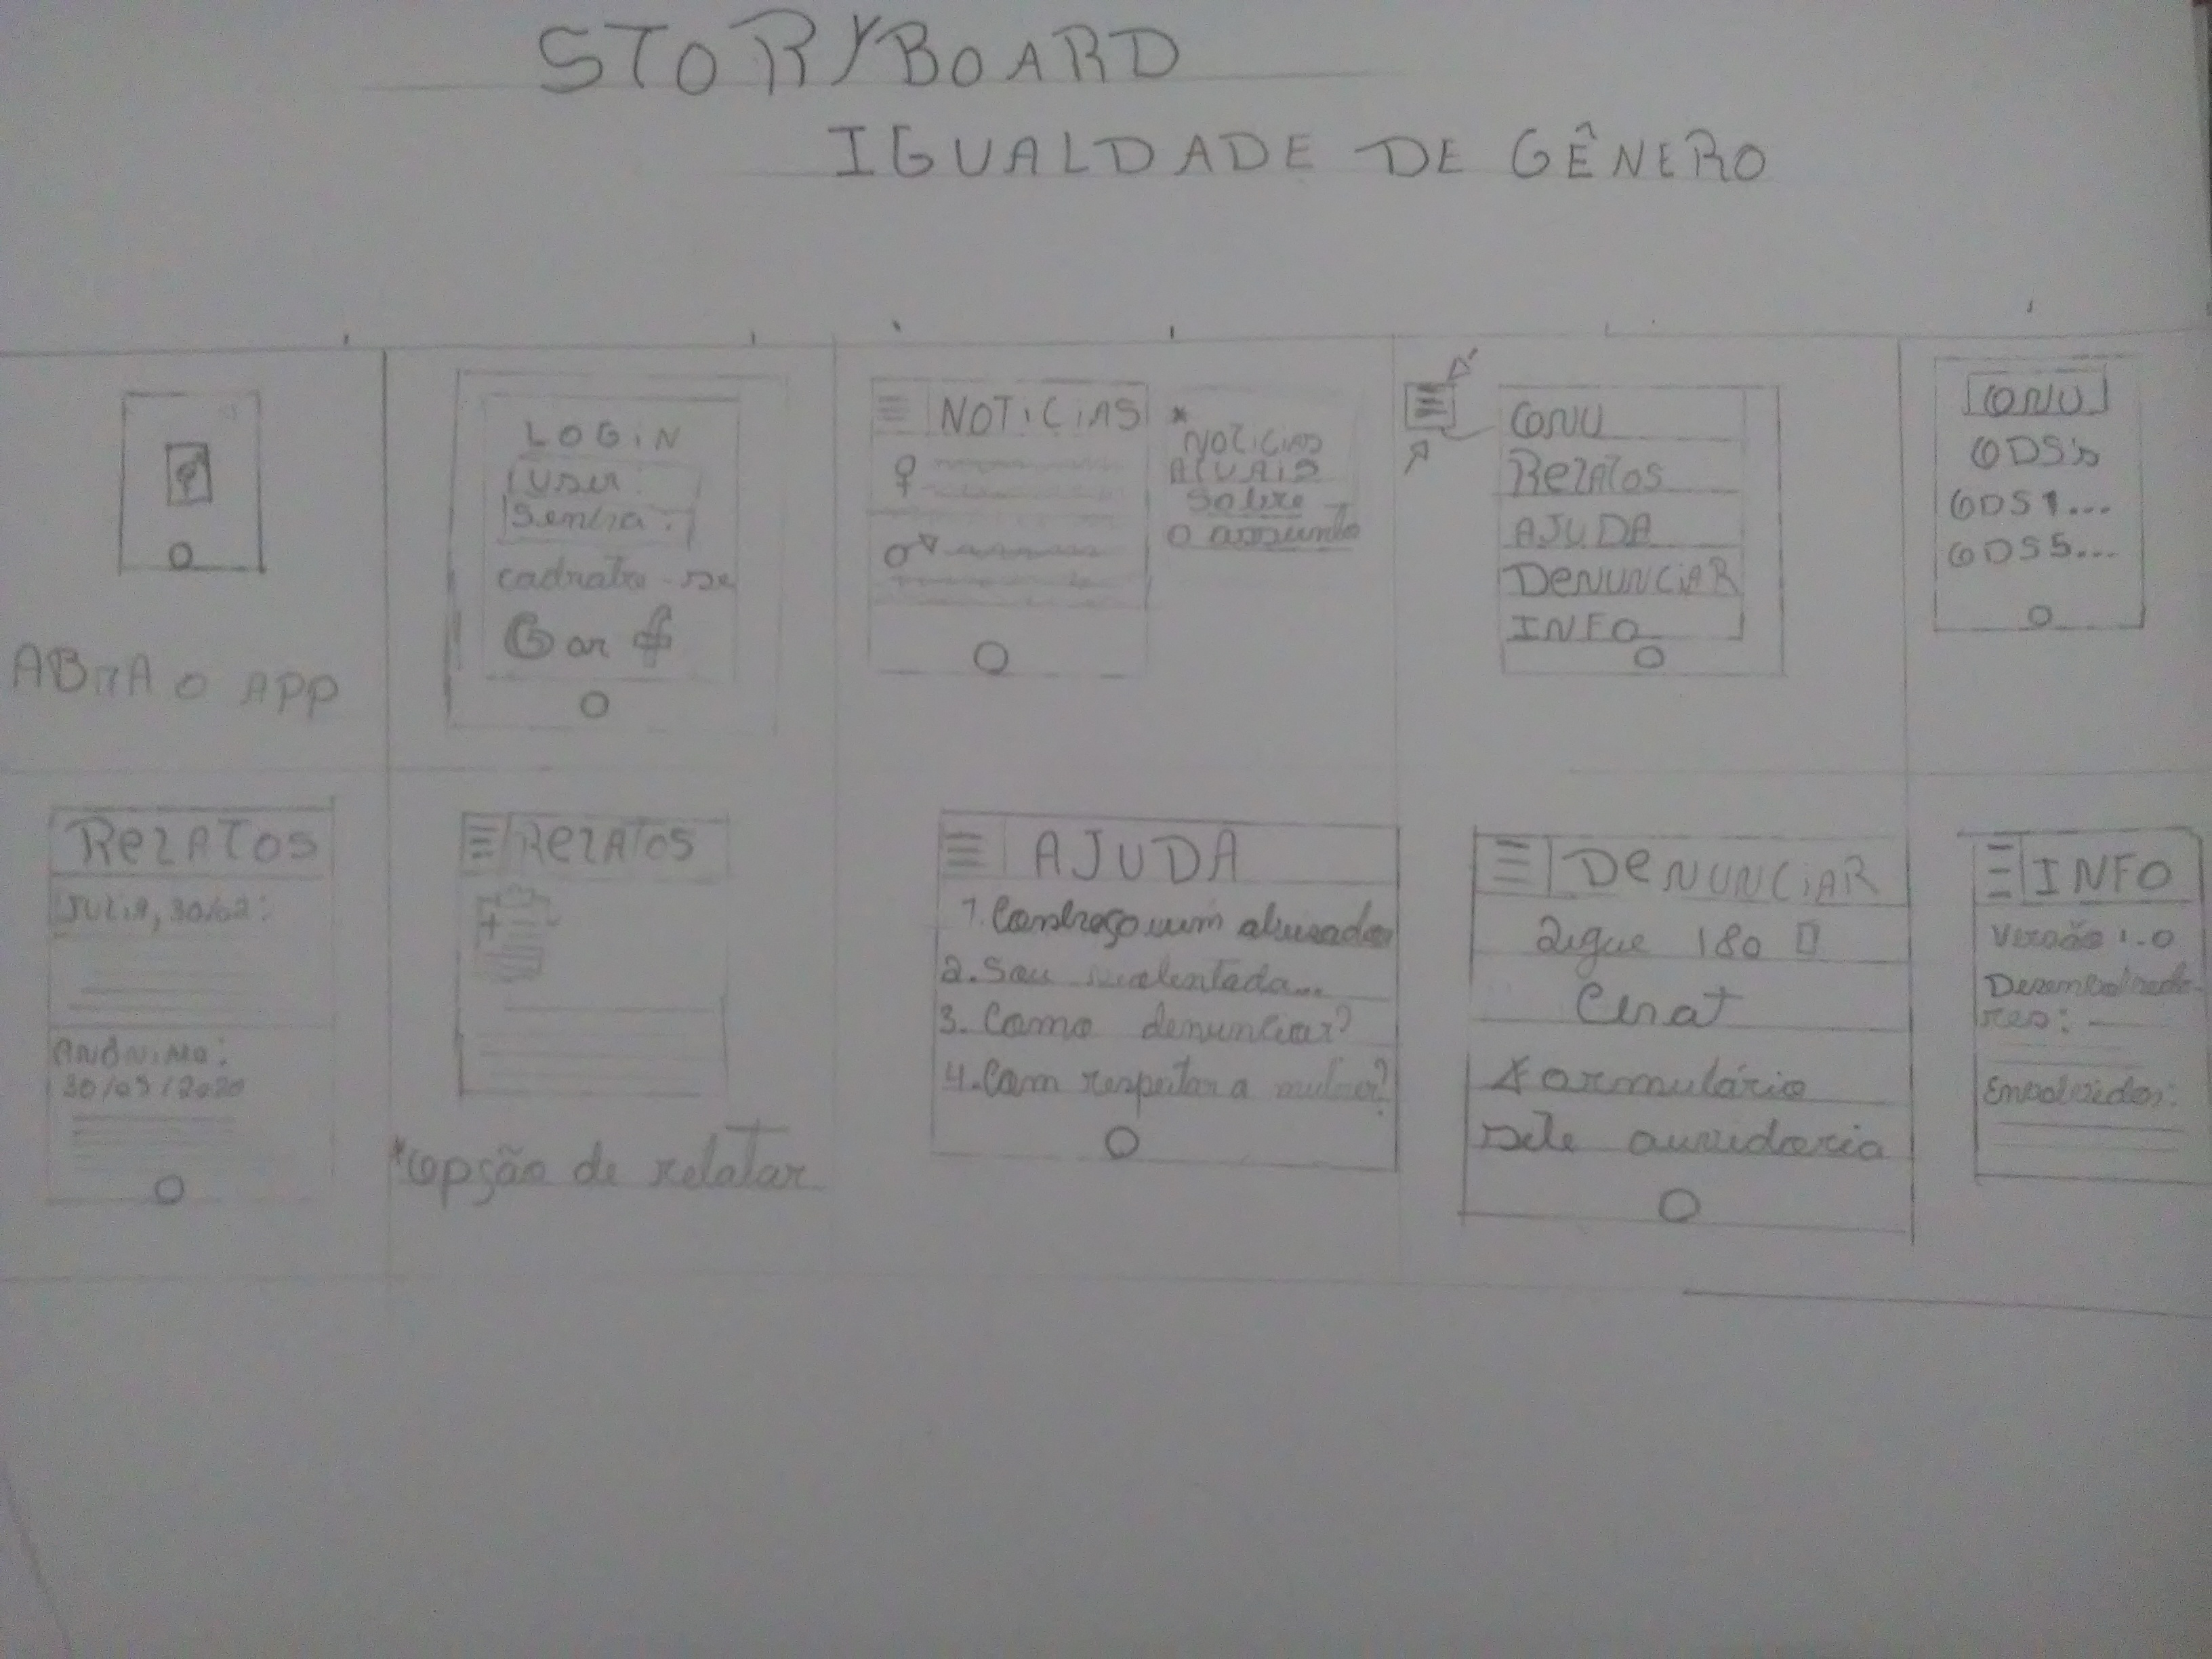 STORYBOARD
IGUALDADE DE GÊNERO
ABRA O APP
LOGIN
user:
Senha:
cadastre-se
G or f
NOTICIAS
*
NOTICIAS
ATUAIS
Sobre
O assunto
ONU
RELATOS
AJUDA
DENUNCIAR
INFO
ONU
ODS's
ODS1...
ODS5...
RELATOS
JULIA, 30/02:
ANÔNIMO:
30/05/2020
RELATOS
+
*opção de relatar
AJUDA
1. Conheço um abusador
2. Sou violentada...
3. Como denunciar?
4. Com respeitar a mulher?
DENUNCIAR
Ligue 180
Chat
Formulário
Site ouvidoria
INFO
Versão 1.0
Desenvolvedo-
res:
Envolvidos: